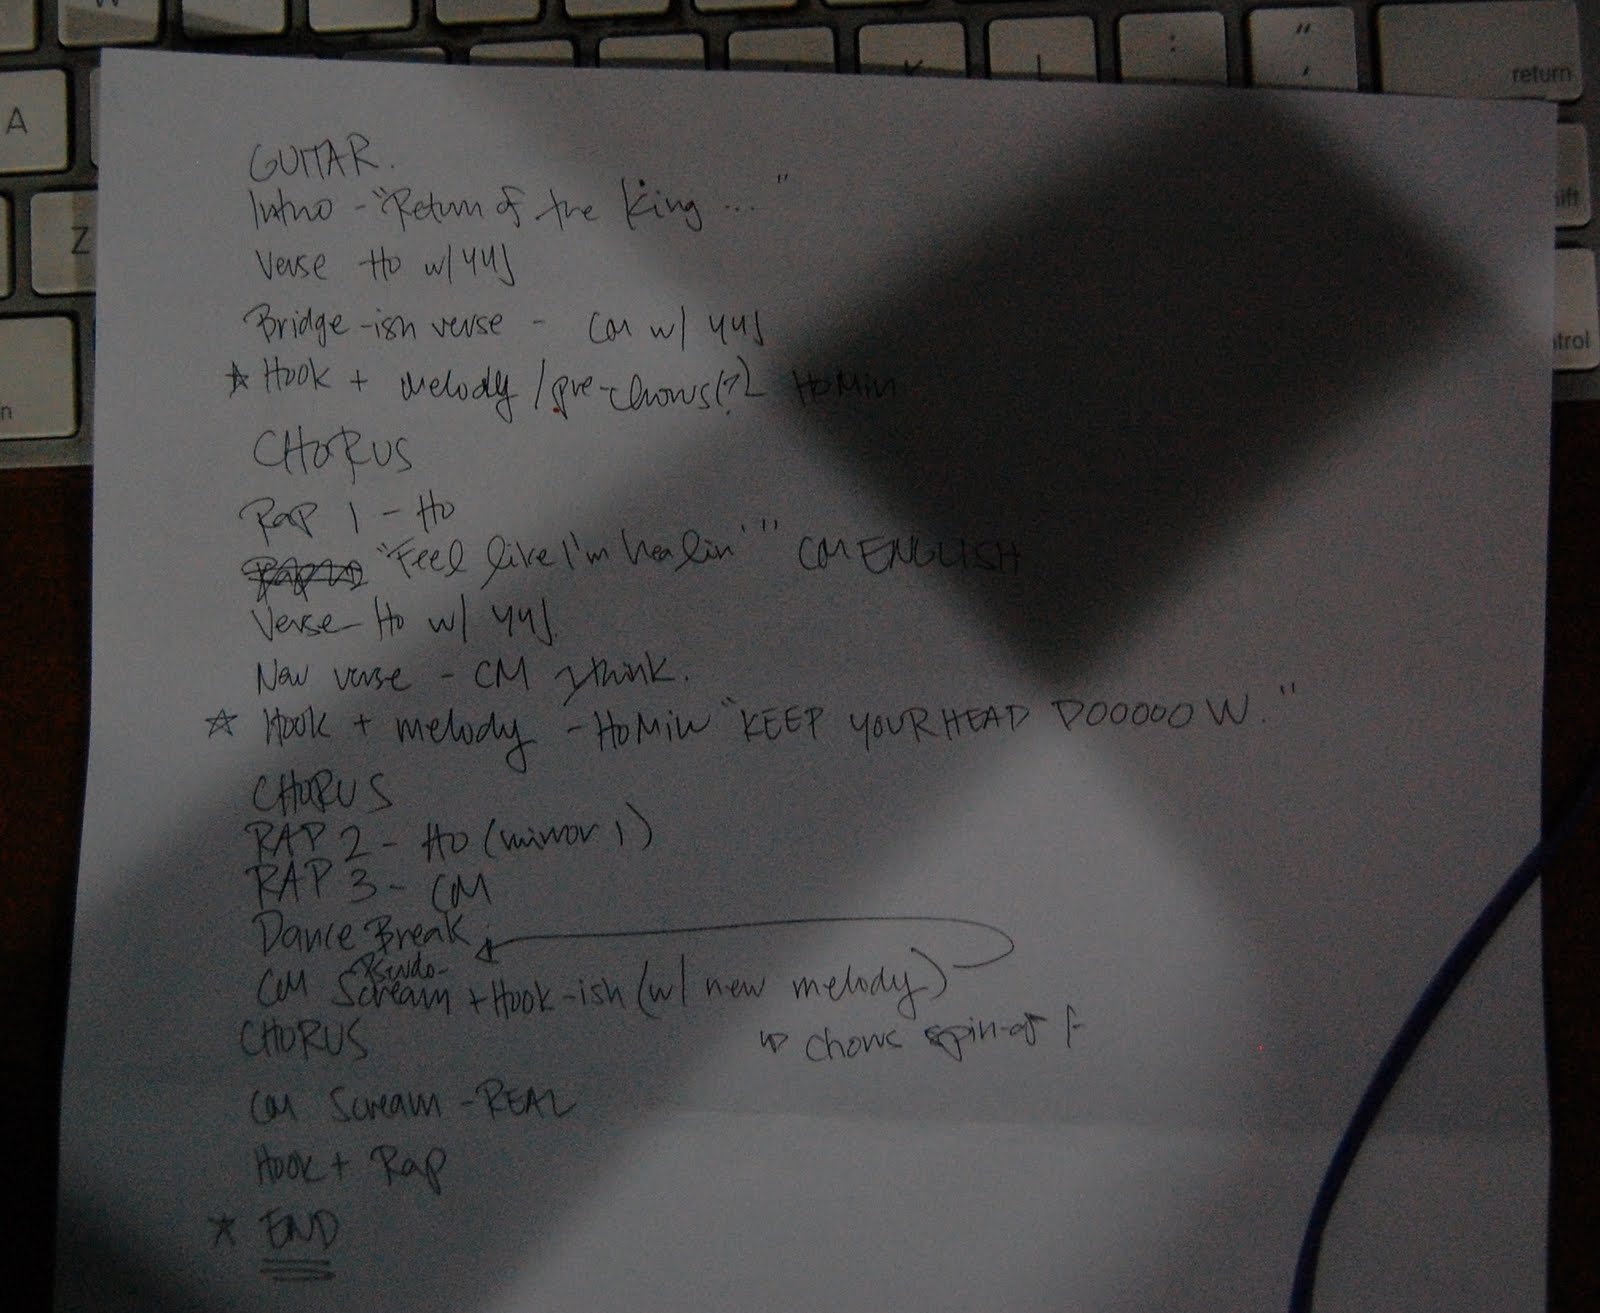 A
Z
K
L
:
;
"
'
return
GUITAR.
Intro - "Return of the King ..."
Verse Ho w/ YYJ
Bridge-ish verse - CM w/ YYJ
☆ Hook + melody / pre-chorus(?) HoMin
CHORUS
Rap 1 - Ho
"Feel like I'm healin'" CM ENGLISH
Verse - Ho w/ YYJ.
New verse - CM I think.
☆ Hook + melody - HoMin "KEEP YOUR HEAD DOOOOOW."
CHORUS
RAP 2 - Ho (mirror 1)
RAP 3 - CM
Dance Break
CM Pseudo-Scream + Hook-ish (w/ new melody)
CHORUS
↳ chorus spin-of
CM Scream - REAL
Hook + Rap
☆ END